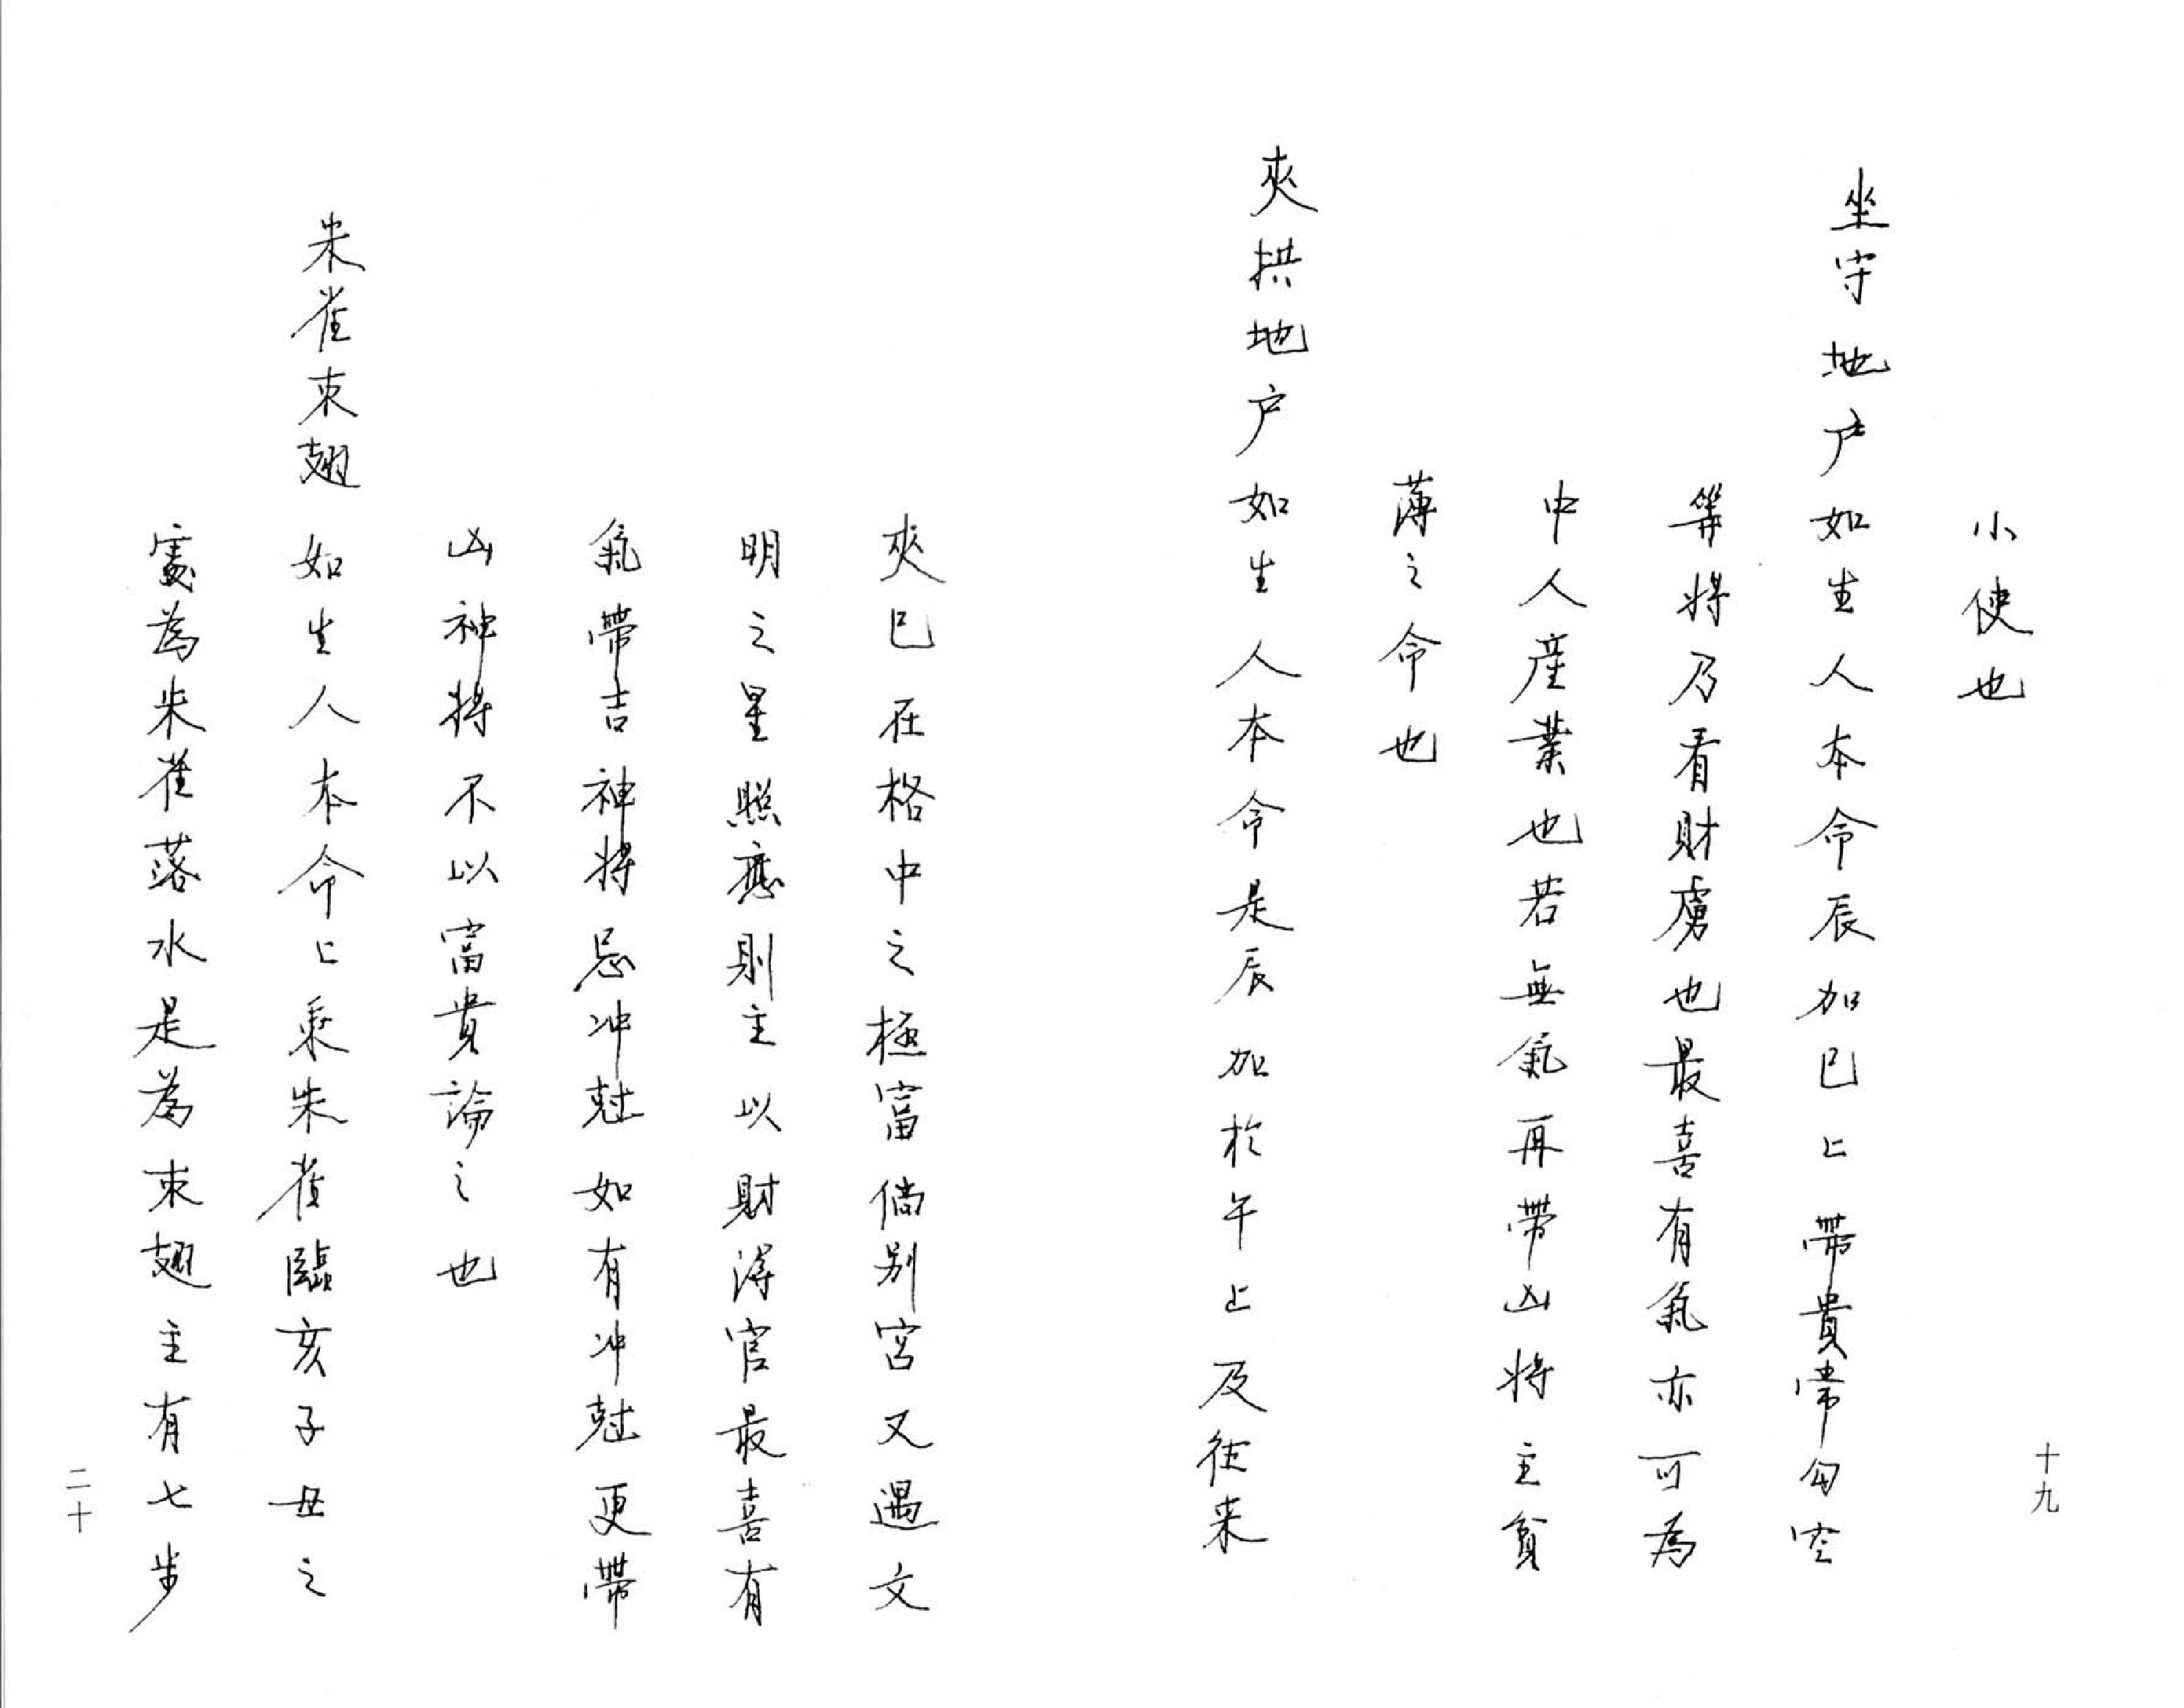 小使也
坐守地户如生人本命辰加巳上帶貴常勾空
等將乃看財虜也最喜有氣亦可為
中人産業也若無氣再帶凶將主貧
薄之命也
夾拱地户如生人本命是辰加於午上及徃来
十九
夾巳在格中之極富倘别宮又遇文
明之星照應則主以財得官最喜有
氣帶吉神將忌冲尅如有冲尅更帶
凶神將不以富貴論之也
朱雀束翅如生人本命上乘朱雀臨亥子丑之
宮為朱雀落水是為束翅主有七步
二十